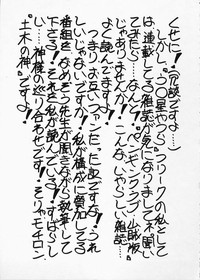 くせに!(冗談ですよ…)
しかし『〇〇星やつら』フリークの私として
は連載してる雑誌が気になりましてネ、聞い
てみたら……なんと!『ペンギンクラブ山賊版』
じゃありませんか!こんないやらしい雑誌…
よく読んでおります。
つまりお互いファンだった訳ですな。うれ
しいじゃないですか!私が構成に参加してる
番組をなめぞう先生が聞きながら執筆して
下さる!それを私が読んでいる!すばらし
い……神様の巡り合わせです!そりゃエロン
『土木の神』ですよ!